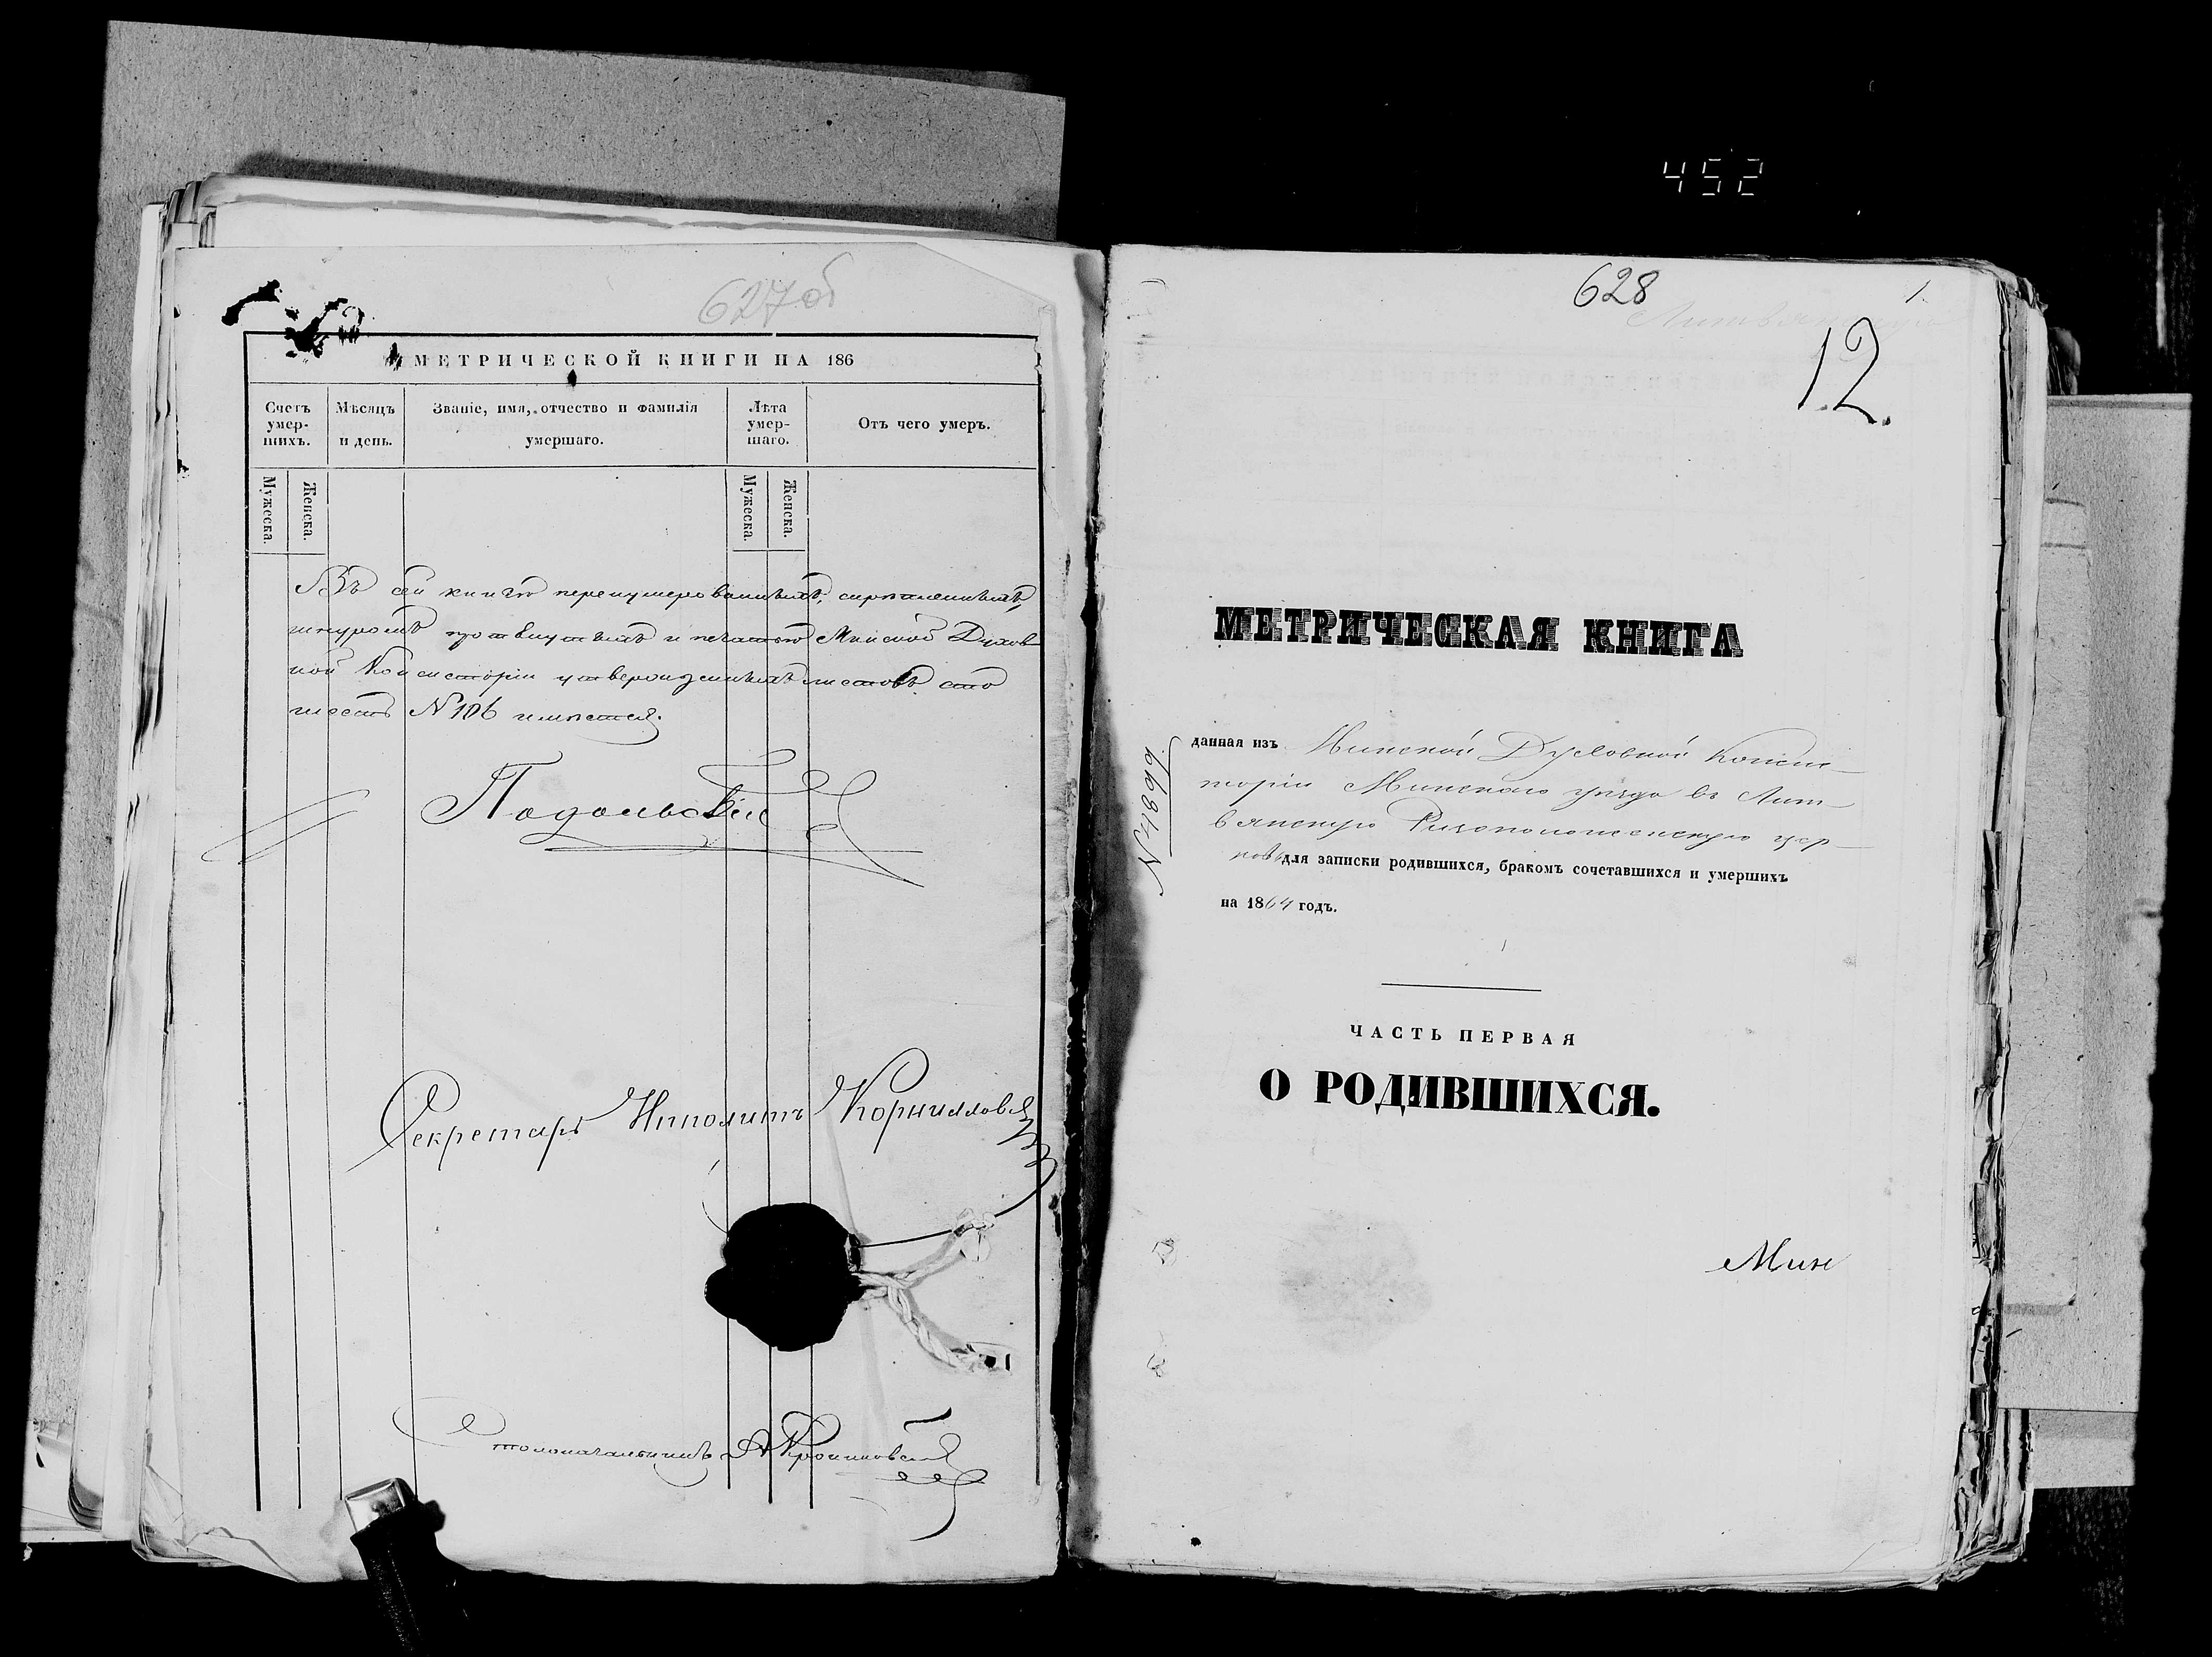 452
627 об
МЕТРИЧЕСКОЙ КНИГИ НА 186
Счетъ умер-шихъ.
Мѣсяцъ и день.
Званіе, имя, отчество и фамилія умершаго.
Лѣта умер-шаго.
Отъ чего умеръ.
Мужеска.
Женска.
Мужеска.
Женска.
Въ сей книгѣ перенумерованныхъ, скрѣпленныхъ,
шнуромъ протянутыхъ и печатью Минской Духов-
ной Консисторіи утвержденныхъ листовъ сто
шесть N 106 имѣется.
Подольскій
Секретарь Ипполитъ Корнилович
Столоначальникъ
628
1.
Литвянскую
12.
МЕТРИЧЕСКАЯ КНИГА
данная изъ Минской Духовной Консис-
торіи Минскаго уѣзда въ Лит-
вянскую Ризоположенскую цер-
ковь для записки родившихся, бракомъ сочетавшихся и умершихъ
на 1864 годъ.
ЧАСТЬ ПЕРВАЯ
О РОДИВШИХСЯ.
Мин